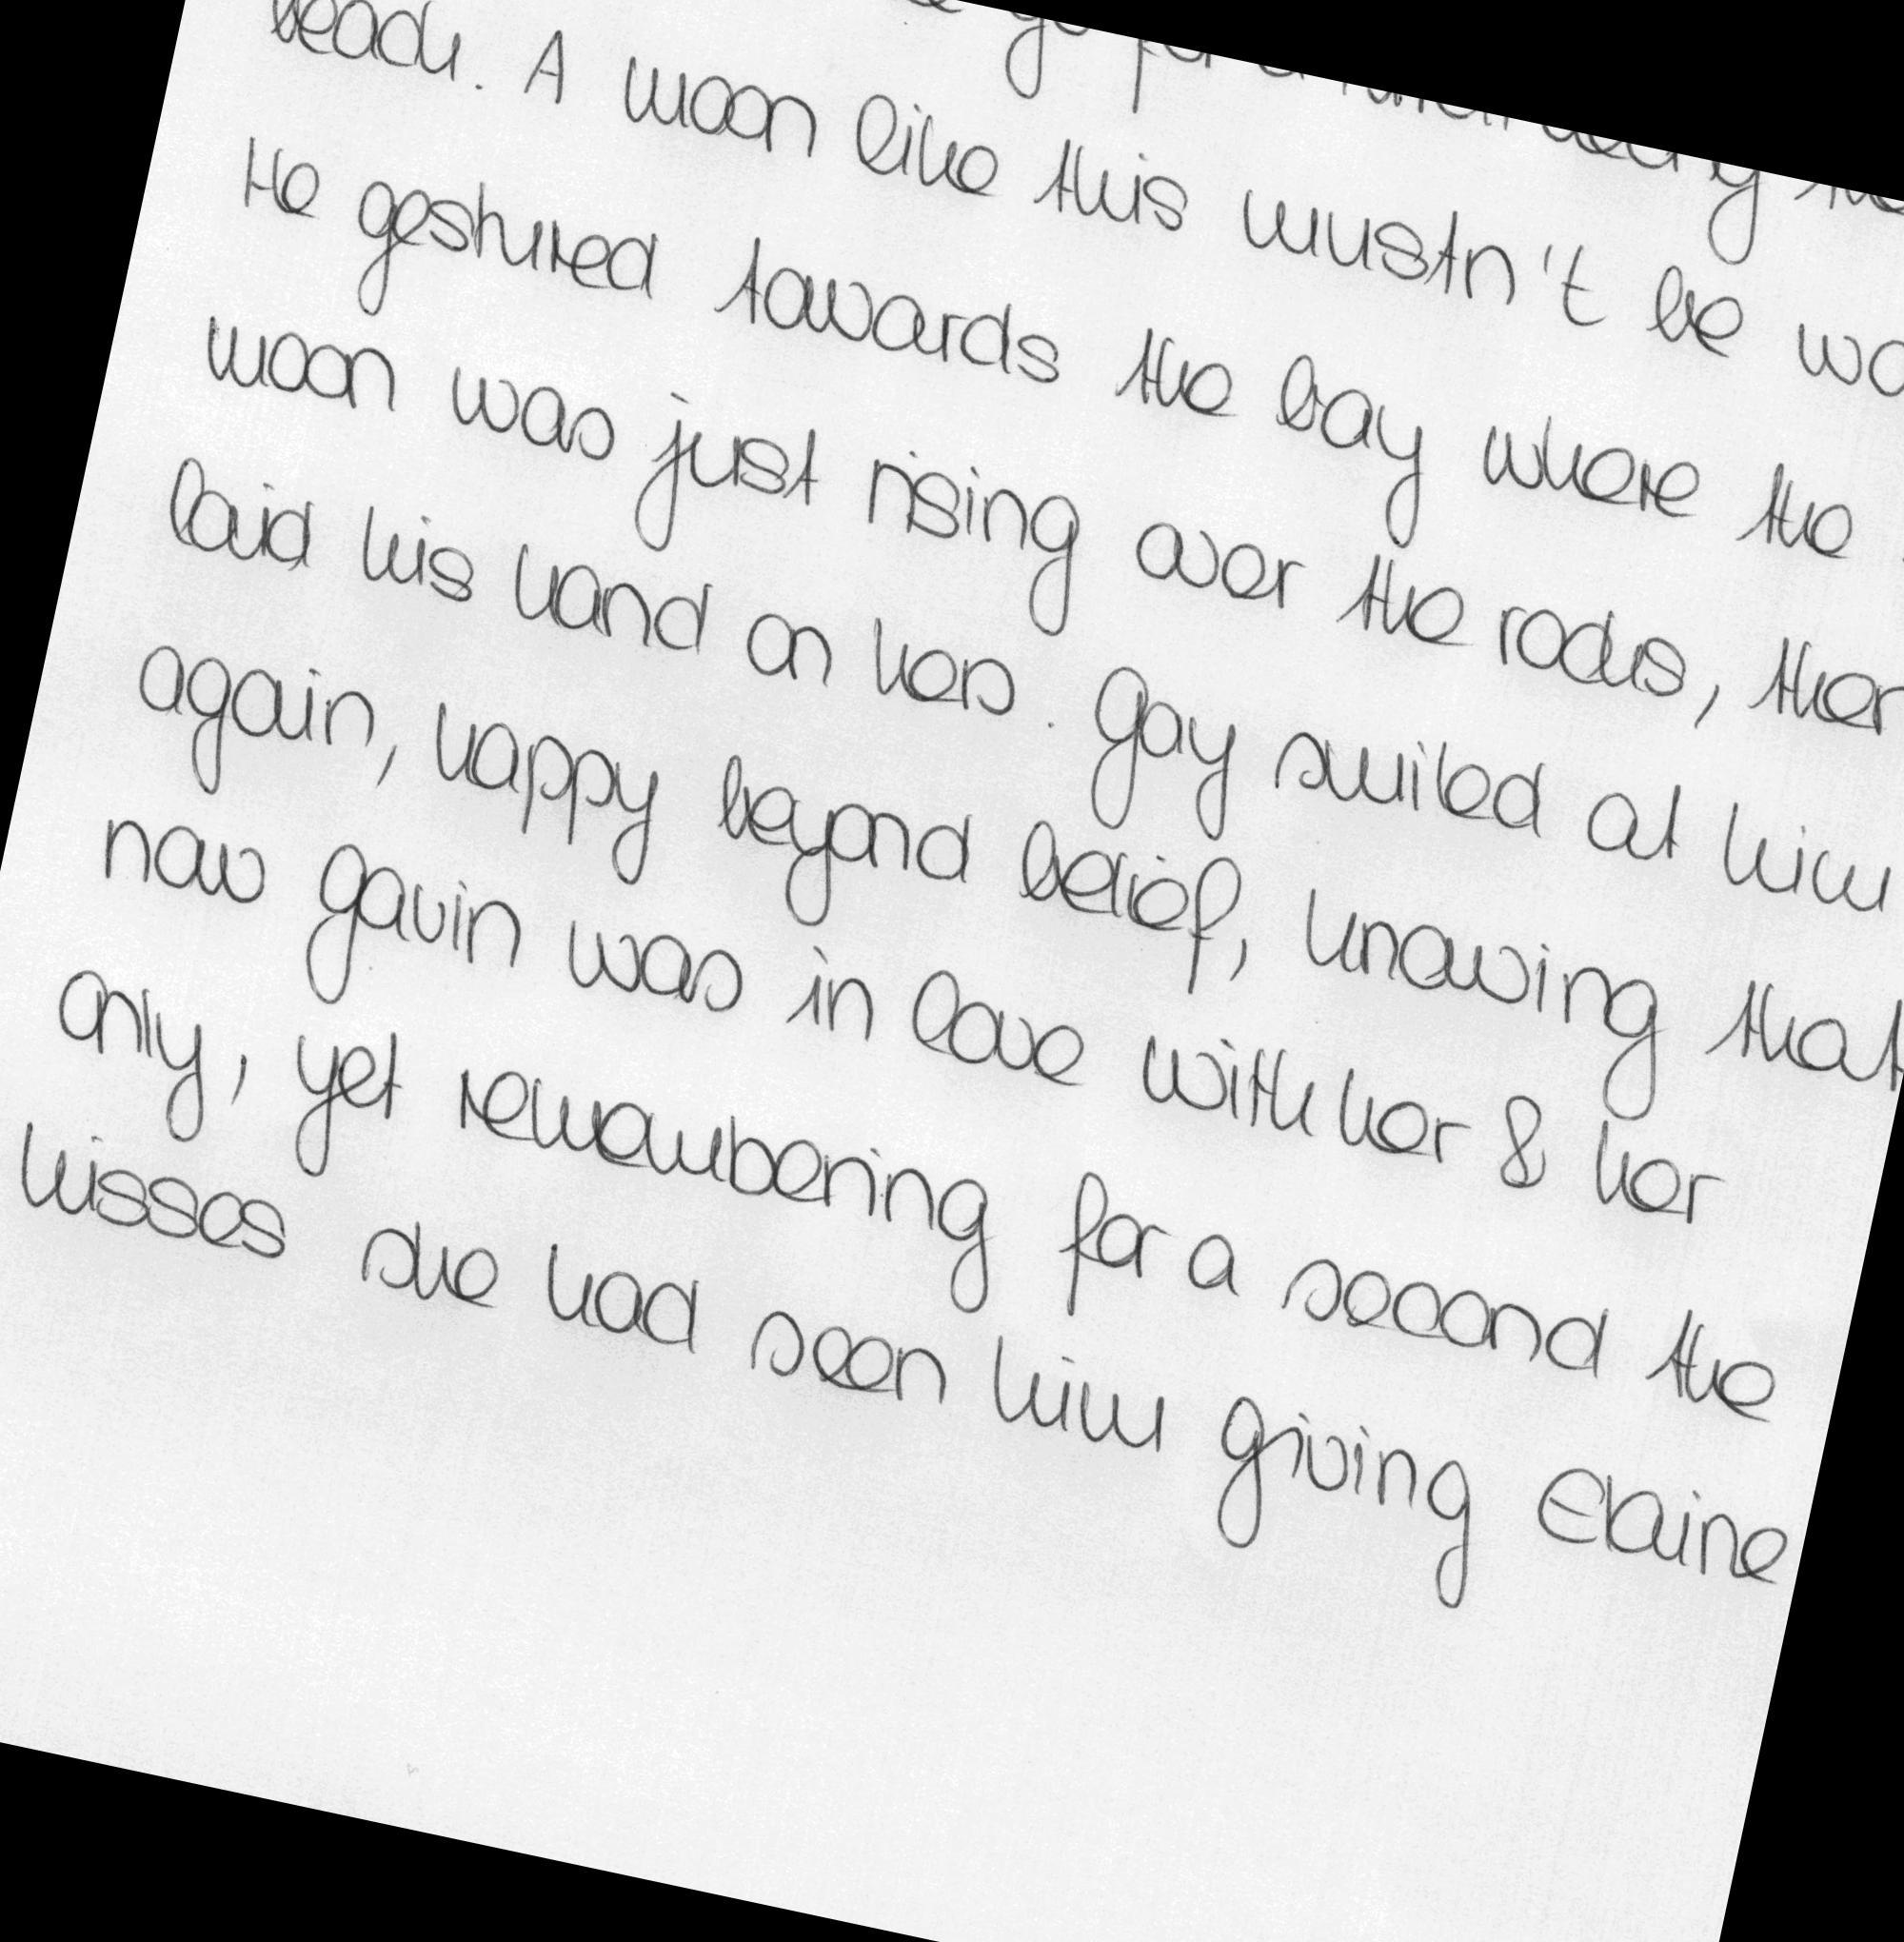 go for a
beach. A moon like this mustn't be
He gestured towards the bay where the
moon was just rising over the rocks, then
laid his hand on hers. Gay smiled at him
again, happy beyond belief, knowing that
now Gavin was in love with her & her
only, yet remembering for a second the
kisses she had seen him giving Elaine